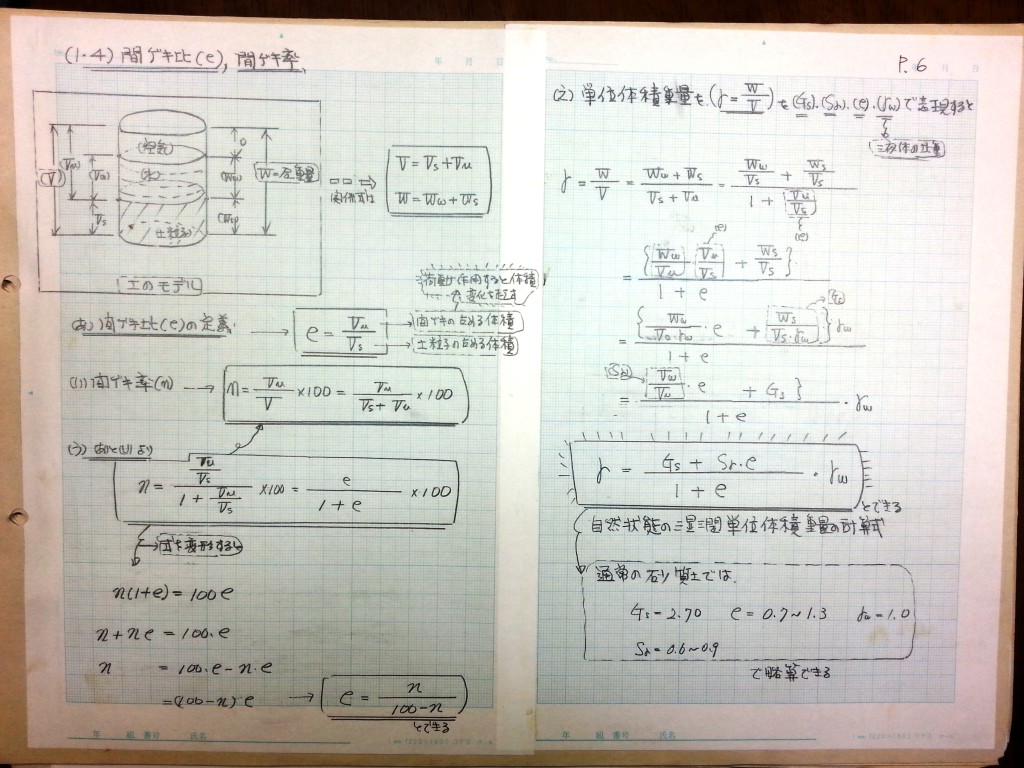 (1・4) 間ゲキ比(e), 間ゲキ率
(空気)
(水)
(土粒子)
(V)
(Vw)
Vs
0
(Ww)
(Ws)
W=全重量
土のモデル
関係式は
V = Vs + Vu
W = Ww + Ws
(あ) 間ゲキ比(e)の定義
e = Vu / Vs
荷重が作用すると体積
変化を起こす
間ゲキの占める体積
土粒子の占める体積
(い) 間ゲキ率(n)
n = Vu / V ×100 = Vu / (Vs + Vu) ×100
(う) あと(い)より
n = (Vu / Vs) / (1 + Vu / Vs) ×100 = e / (1 + e) ×100
式を変形すると
n(1+e) = 100e
n + ne = 100・e
n = 100・e − n・e
= (100−n)・e
e = n / (100−n)
とできる
P. 6
(え) 単位体積重量を (γ = W / V) を (Gs)・(Sr)・(e)・(γw) で表現すると
γ = W / V = (Ww + Ws) / (Vs + Vu) = (Ww / Vs + Ws / Vs) / (1 + Vu / Vs)
(e)
(e)
= {Ww / Vu ・ Vu / Vs + Ws / Vs} / (1 + e)
(Gs)
= {Ww / (Vu・γw) ・e + Ws / (Vs・γw)} γw / (1 + e)
(Sr)
= {Vw / Vu ・e + Gs} / (1 + e) ・γw
γ = (Gs + Sr・e) / (1 + e) ・γw
とできる
自然状態の土量三間単位体積重量の計算式
通常の砂質土では
Gs = 2.70 e = 0.7~1.3 γw = 1.0
Sr = 0.6~0.9
で略算できる
年 組 番号 氏名
年 組 番号 氏名